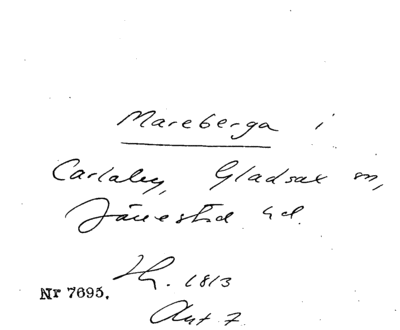 Mareberga i
Carlaby, Gladsax sn,
Järrestad hd.
Lh. 1813
Nr 7695.
Akt 7